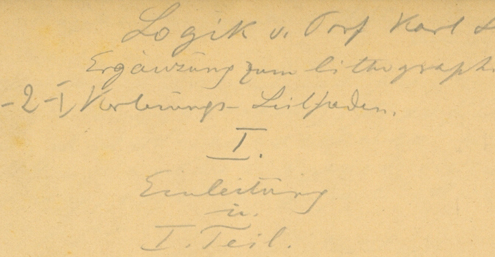 Logik v. Prof Karl S
Ergänzung zum lithograph
-2- I, Vorlesungs-Leitfaden.
I.
Einleitung
u.
I. Teil.